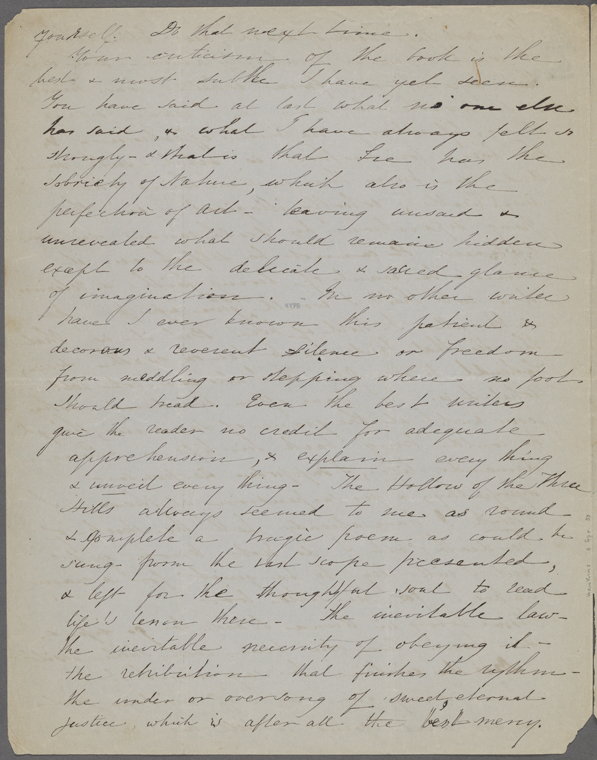 yourself. Do that next time.
Your criticism of the book is the
best & most subtle I have yet seen.
You have said at last what no one else
has said, & what I have always felt so
strongly - & that is that has the
sobriety of Nature, which also is the
perfection of art - leaving unsaid &
unrevealed what should remain hidden
except to the delicate & sacred glance
of imagination. In no other writer
have I ever known this patient &
decorous & reverent silence or freedom
from meddling or stepping where no foot
should tread. Even the best writers
give the reader no credit for adequate
apprehension, & explain every thing
& unveil every thing - The Hollow of the Three
Hills always seemed to me as round
& complete a tragic poem as could be
sung - from the vast scope presented,
& left for the thoughtful soul to read
life's lesson there - The inevitable law -
the inevitable necessity of obeying it -
the retribution that finishes the rythm -
the under or oversong of sweet, eternal
justice which is after all the best mercy.